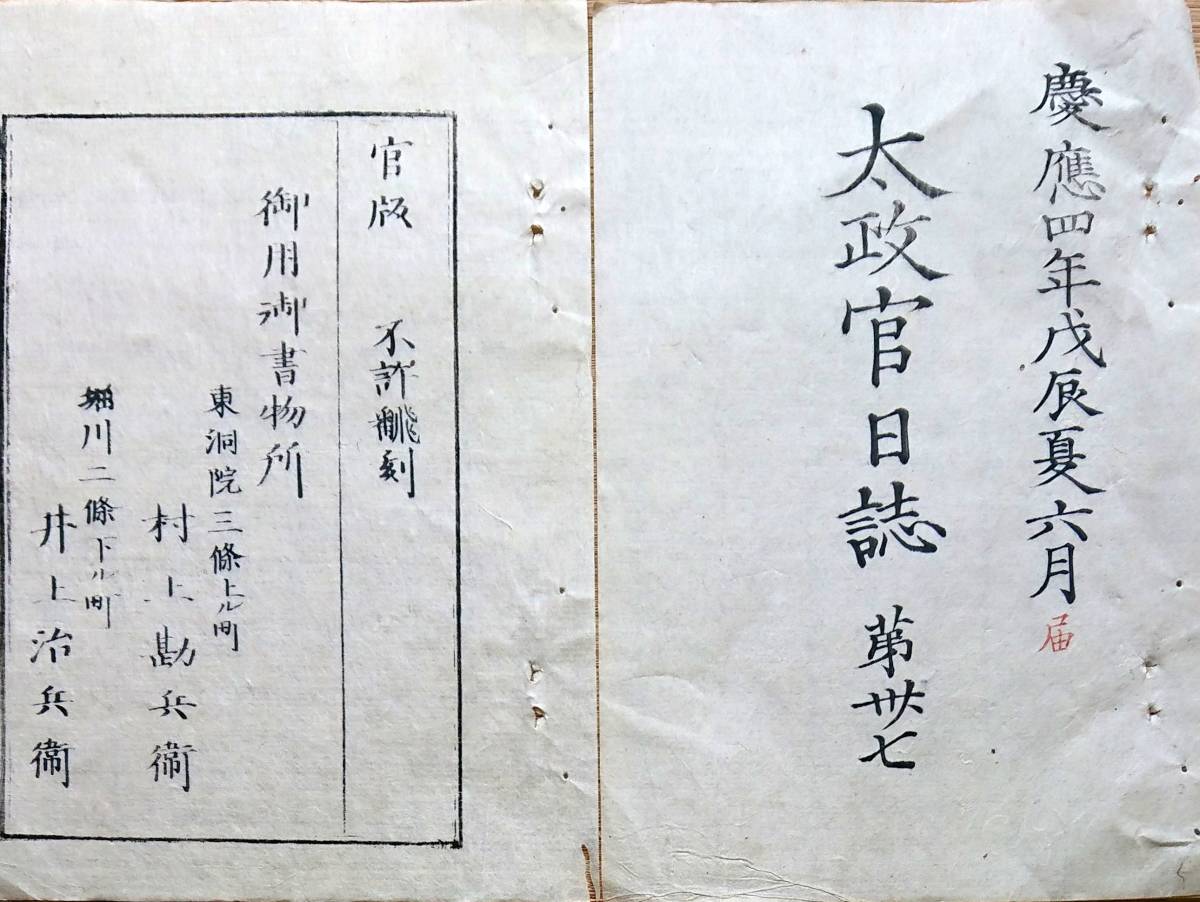 慶應四年戊辰夏六月 届
太政官日誌 第丗七
官版 不許飜刻
御用御書物所
東洞院三條上ル町
村上勘兵衞
堀川二條下ル町
井上治兵衞